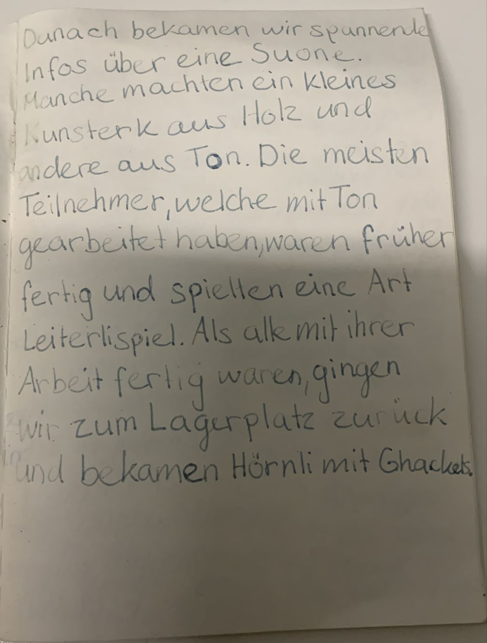 Danach bekamen wir spannende
Infos über eine Suone.
Manche machten ein kleines
Kunsterk aus Holz und
andere aus Ton. Die meisten
Teilnehmer, welche mit Ton
gearbeitet haben, waren früher
fertig und spielten eine Art
Leiterlispiel. Als alle mit ihrer
Arbeit fertig waren, gingen
wir zum Lagerplatz zurück
und bekamen Hörnli mit Ghackets.